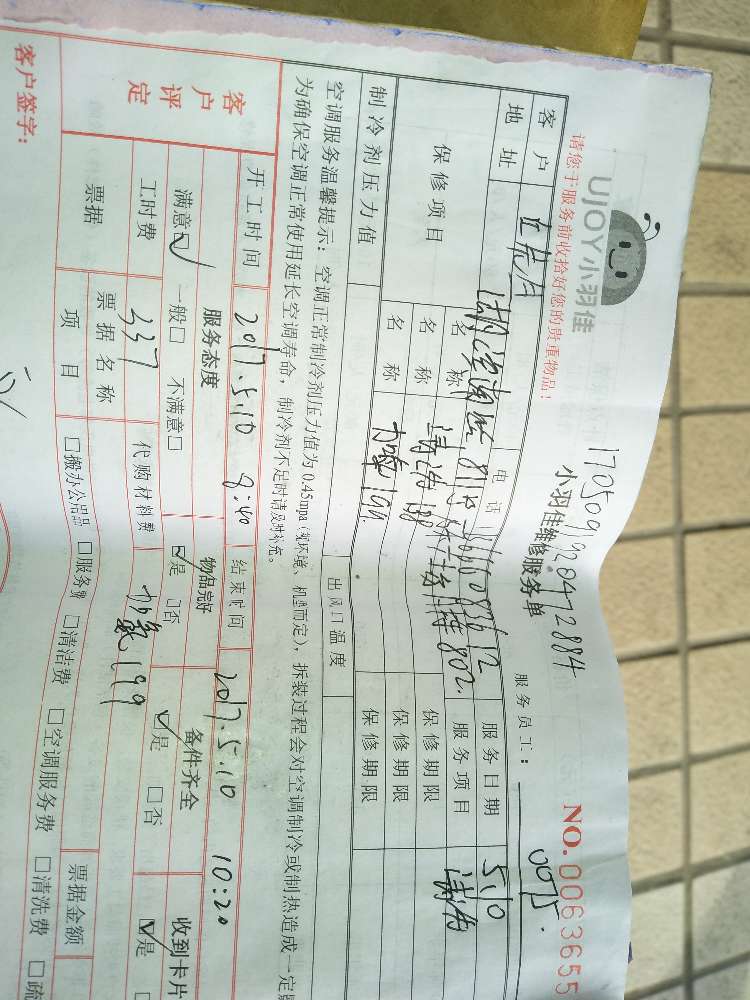 UJOY小羽佳
170509190472884
小羽佳维修服务单
NO.0063655
请您于服务前收拾好您的贵重物品!
服务员工: 0075.
客户 电话 服务日期 5.10
地址 802. 服务项目 清洁
保修项目 名称 清洗 188 保修期限
名称 保修期限
名称 加氟199 保修期限
制冷剂压力值 出风口温度
空调服务温馨提示: 空调正常制冷剂压力值为0.45mpa(视环境、机型而定), 拆装过程会对空调制冷或制热造成一定
为确保空调正常使用延长空调寿命, 制冷剂不足时请及时补充。
客户评定
开工时间 2017.5.10 8:40 结束时间 2017.5.10 10:20
服务态度 物品完好 备件齐全 收到卡片
满意☑ 一般□ 不满意□ ☑是 □否 ☑是 □否 ☑是
工时费 337 代购材料费 加氟199
票据 票据名称 票据金额
项目 □搬办公用品 □服务费 □清洁费 □空调服务费 □清洗费 □疏
客户签字: